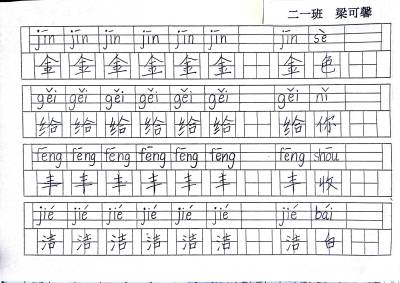 二一班 梁可馨
jīn jīn jīn jīn jīn jīn jīn jīn sè
金 金 金 金 金 金 金 金 色
gěi gěi gěi gěi gěi gěi gěi gěi nǐ
给 给 给 给 给 给 给 给 你
fēng fēng fēng fēng fēng fēng fēng fēng shōu
丰 丰 丰 丰 丰 丰 丰 丰 收
jié jié jié jié jié jié jié jié bái
洁 洁 洁 洁 洁 洁 洁 洁 白